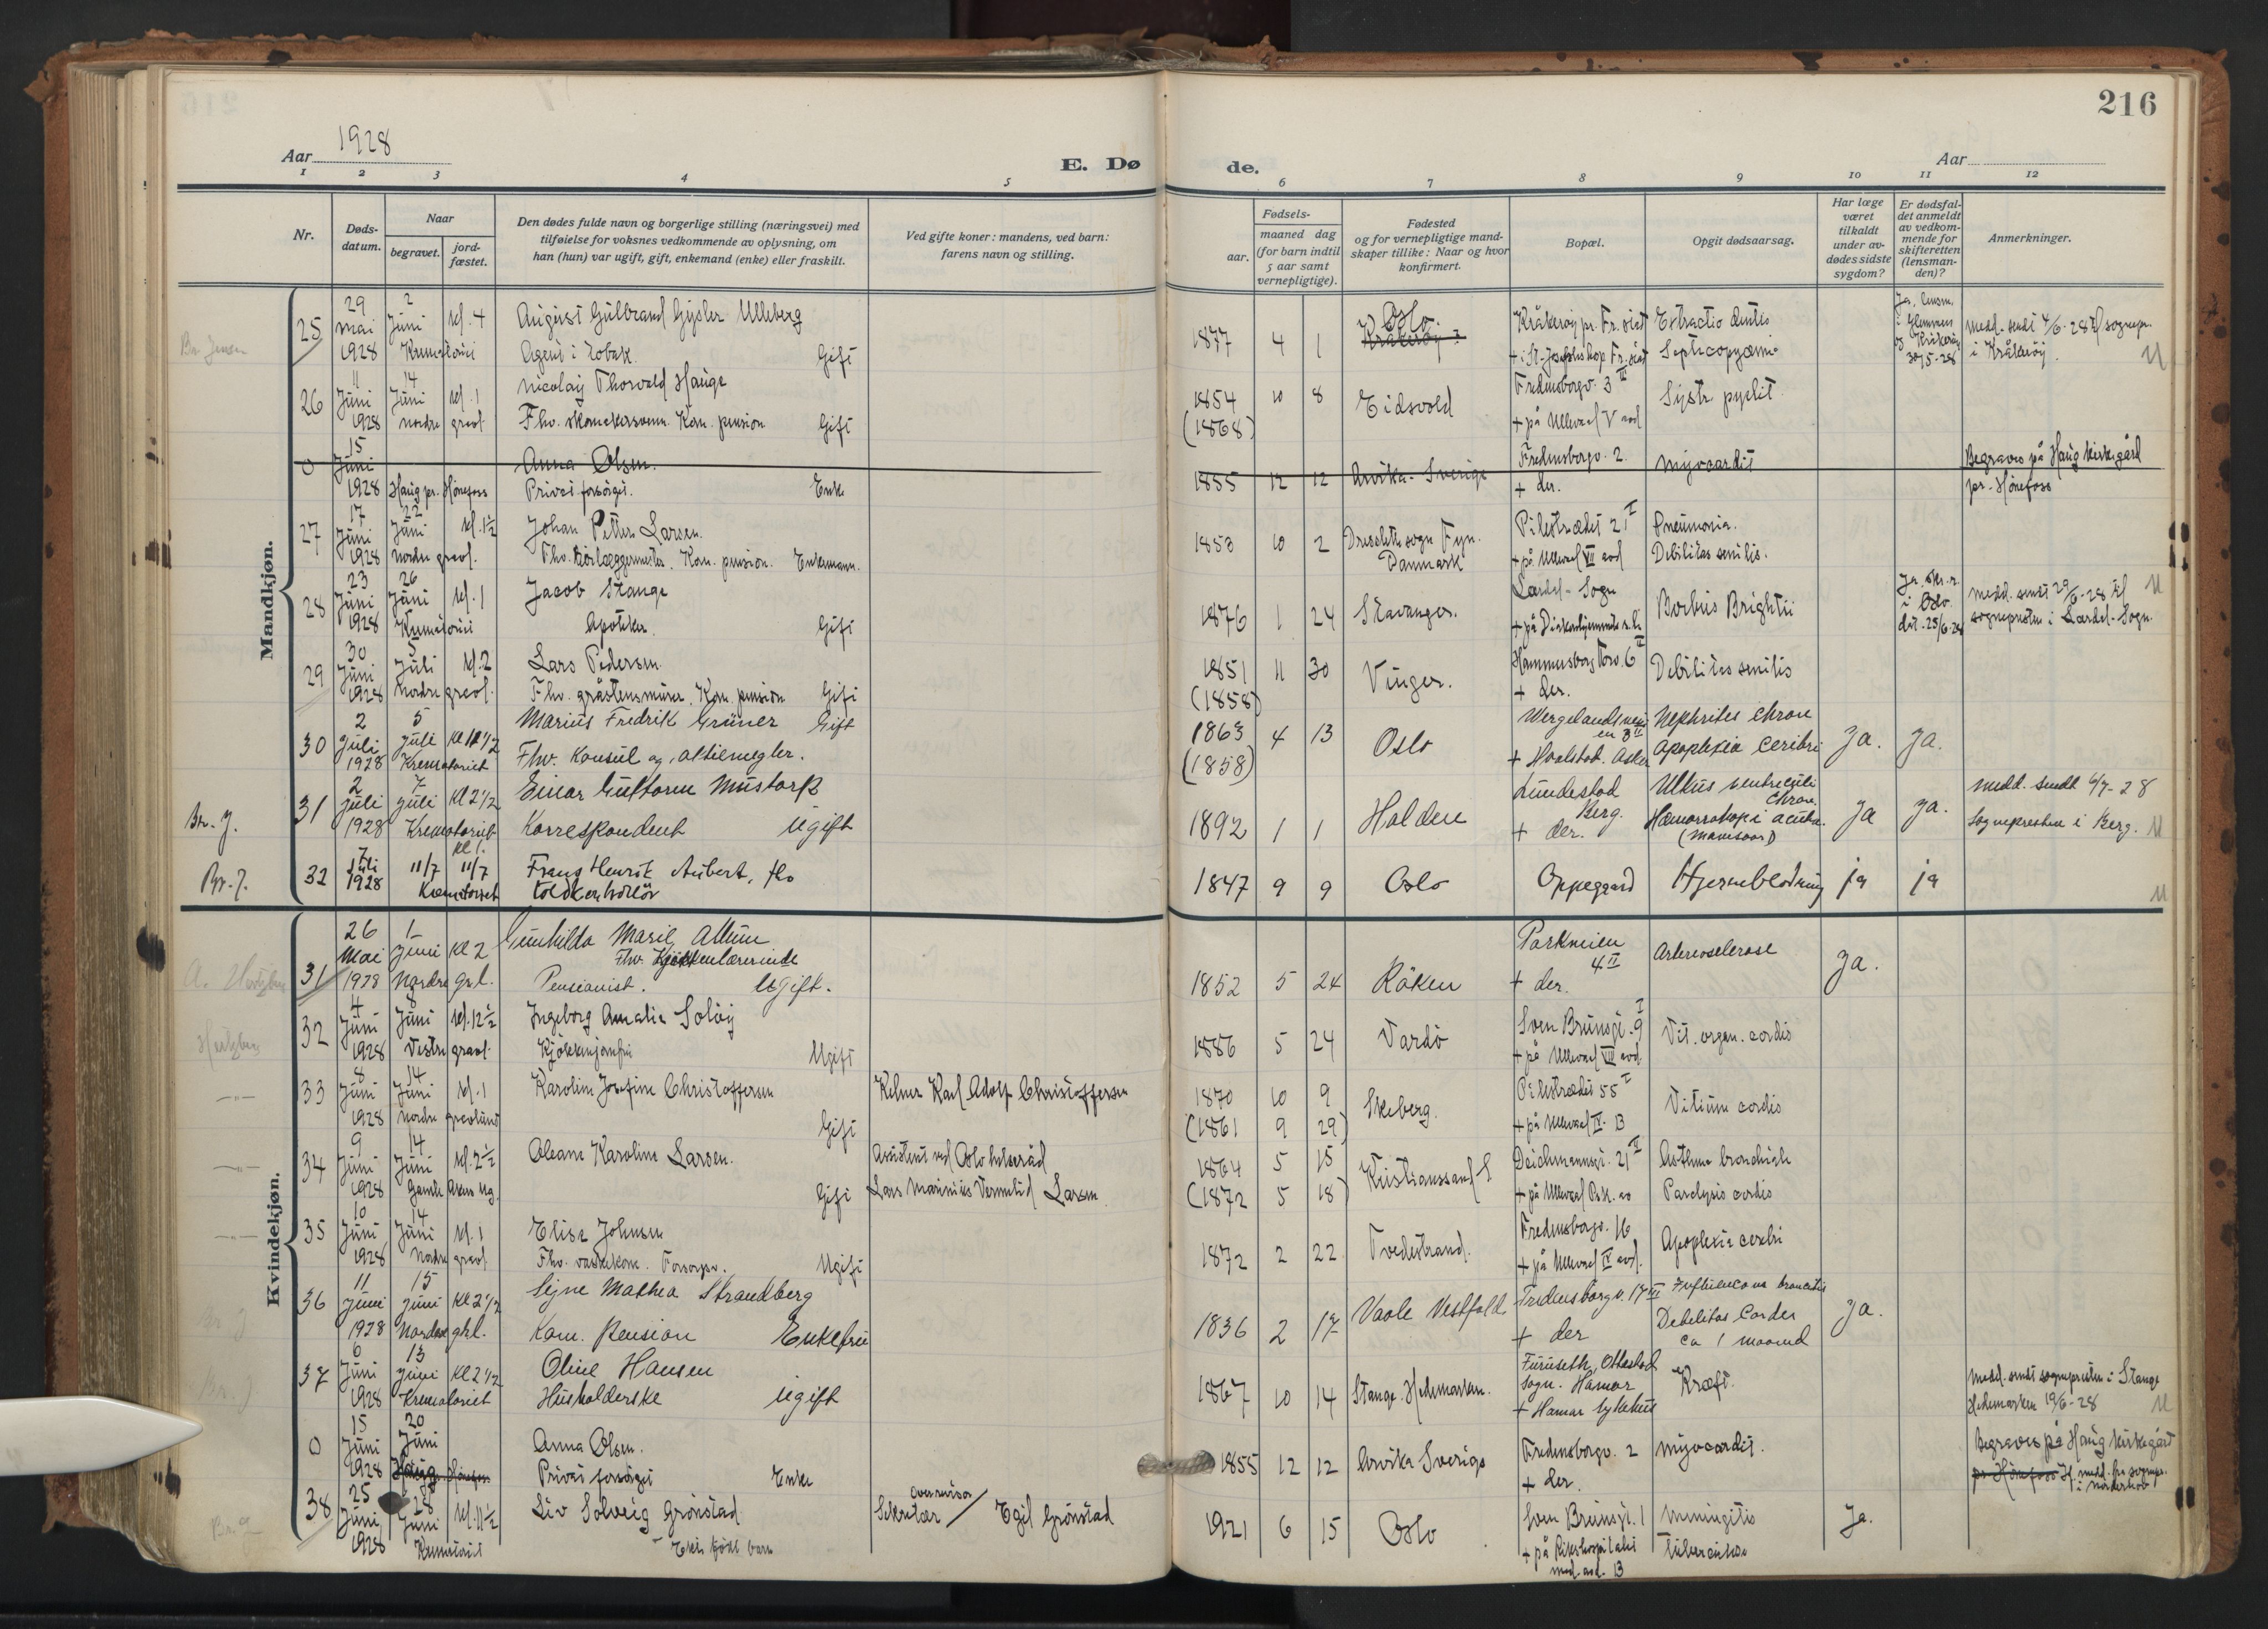 216
Aar 1928
E. Dø
de.
Aar
1 2 3 4 5 6 7 8 9 10 11 12
Nr.
Døds-
datum.
Naar
begravet.
jord-
fæstet.
Den dødes fulde navn og borgerlige stilling (næringsvei) med
tilføielse for voksnes vedkommende av oplysning, om
han (hun) var ugift, gift, enkemand (enke) eller fraskilt.
Ved gifte koner: mandens, ved barn:
farens navn og stilling.
Fødsels-
aar.
maaned dag
(for barn indtil
5 aar samt
vernepligtige).
Fødested
og for vernepligtige mand-
skaper tillike: Naar og hvor
konfirmert.
Bopæl.
Opgit dødsaarsag.
Har læge
været
tilkaldt
under av-
dødes sidste
sygdom?
Er dødsfal-
det anmeldt
av vedkom-
mende for
skifteretten
(lensman-
den)?
Anmerkninger.
Mandkjøn.
25 29 mai 1928 2 Juni kl. 4 Krematoriet
August Gulbrand Gysler Ulleberg
Agent i Tobak Gift
1877 4 1 Oslo. Kråkerøy
Kråkerøy pr. Fr.stad
Extractio dentis
Septicopyæmi
30/5-28
medd. sendt 4/6-28 til sognepr.
i Kråkerøy.
26 11 Juni 1928 14 Juni kl. 1 Nordre gravl.
Nicolay Thorvald Hauge
Fhv. skomakersvenn. Kom. pension Gift
1854 (1868) 10 8 Eidsvold
Fredensborgv. 3 II
+ på Ullevaal V avd
pyelit
0 15 Juni 1928 Haug pr. Hønefoss
Anna Olsen.
Privat forsørget. Enke
1855 12 12 Arvika - Sverige
Fredensborgv. 2.
+ der.
Myocardit
Begraves på Haug kirkegård
pr. Hønefoss
27 17 Juni 1928 22 Juni kl. 1½ Nordre gravl.
Johan Petter Larsen.
Fhv. Rørlæggermester. Kom. pension. Enkemann.
1853 10 2 sogn Fyn.
Danmark
Pilestrædet 21 I
+ på Ullevaal VII avd
Pneumonia.
Debilitas senilis.
28 23 Juni 1928 26 Juni kl. 1 Krematoriet
Jacob Stange
Apotheker. Gift
1876 1 24 Stavanger.
Lærdal - Sogn
+ på Diakonhjemmets s.h.
Morbus Brightii
Ja. sk.r.
i Oslo.
dat. 25/6-28
medd. sendt 29/6-28 til
sognepresten i Lærdal-Sogn.
29 30 Juni 1928 5 Juli kl. 2 Nordre gravl.
Lars Pedersen
Fhv. gråstensmurer. Kom. pension Gift
1851 (1858) 11 30 Vinger.
Hammersborg Torv. 6 II
+ der.
Debilitas senilis
30 2 Juli 1928 5 Juli Krematoriet
Marius Fredrik Grüner Gift
Fhv. Konsul og aktiemegler.
1863 (1858) 4 13 Oslo
Wergelandsvei
en 3 II
+ Hvalstad. Asker
Nephrites chron
apoplexia ceribri
Ja. Ja.
Br. J. 31 2 Juli 1928 7 Juli Kl 2 1/2 Krematoriet
Einar Guttorm Mustorp
Korrespondent Ugift
1892 1 1 Halden
Lundestad
Berg.
+ der.
Ulkus ventreculi
chron.
Hæmorrahagi acuta.
(mavesaar)
Ja Ja.
medd. sendt 6/7-28
Sognepresten i Berg.
Br. J. 32 7 Juli 1928 11/7 Kl 1. 11/7 Krematoriet
Frans Henrik Aubert, fhv
toldkontrollør
1847 9 9 Oslo Oppegaard Hjerneblødning ja ja
Kvindekjøn.
31 26 Mai 1928 1 Juni Kl 2 Nordre grl.
Gunhilda Marie Allum
Fhv Kjøkkenlærerinde
Pensionist. Ugift.
1852 5 24 Røken
Parkveien
4 II
+ der.
Arterioselerose
Ja.
Hertzberg 32 4 Juni 1928 8 Juni kl. 12½ Vestre gravl.
Ingeborg Amalie Soløy
Kjøkkenjomfru Ugift
1886 5 24 Vardø
Sven Brunsgt. 9 I
+ på Ullevaal VIII avd.
Vit. organ. cordis
-"- 33 8 Juni 1928 14 Juni kl. 1 Nordre gravlund
Karoline Josefine Christoffersen
Gift
Kelner Karl Adolf Christoffersen
1870 10 9
(1861 9 29)
Skeberg.
Pilestrædet 55 I
+ på Ullevaal IV. B
Vitium cordis
-"- 34 9 Juni 1928 14 Juni kl. 2½ Gamle Akers kg.
Oleane Karoline Larsen.
Gift
Assistent ved Oslo helseråd
Lars Larsen
1864 5 15
(1872 5 18)
Kristianssand S
Deichmannsgt. 21 II
Asthma bronchiale
Paralysis cordis
-"- 35 10 Juni 1928 14 Juni kl. 1 Nordre gravl.
Elise Johnsen
Fhv. vaskekone. Forsorgsv. Ugift
1872 2 22 Tvedestrand.
Fredensborgv. 16
+ på Ullevaal IV avd.
Apoplexia cerebri
Br. J 36 11 Juni 1928 15 Juni Kl 2 1/2 Nordre grl.
Signe Mathea Strandberg
Kom. Pension Enkefru
1836 2 17 Vaale Vestfold
Fredensborgv. 17 III
+ der
Debelitas Cordes
ca 1 maaned
Ja.
Br. J 37 6 Juni 1928 13 Juni Kl 2 1/2 Krematoriet
Oline Hansen
Husholderske Ugift
1867 10 14 Stange. Hedemarken.
Furuseth, Ottestad
Sogn. Hamar
+ Hamar sykehus
Kræft.
medd. sendt sognepresten i Stange
Hedemarken 19/6-28
0 15 Juni 1928 20 Juni
Anna Olsen.
Privat forsørget Enke
1855 12 12 Arvika Sverige
Fredensborgv. 2
+ der.
Myocardit.
Begraves på Haug kirkegård
pr Hønefoss
38 25 Juni 1928 28 Juni kl. 11½ Krematoriet
Liv Solveig Grønstad
Ekte født barn
Sekretær / Egil Grønstad
1921 6 15 Oslo
Sven Brunsgt. 1
+ på Rikshospitalet
med. avd. B
Meningitis
tuberculosa
Ja.